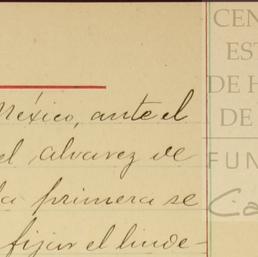 México, ante el
el alvarez de
la primera se
fijar el linde-
CEN
EST
DE H
DE
FUN
Ca